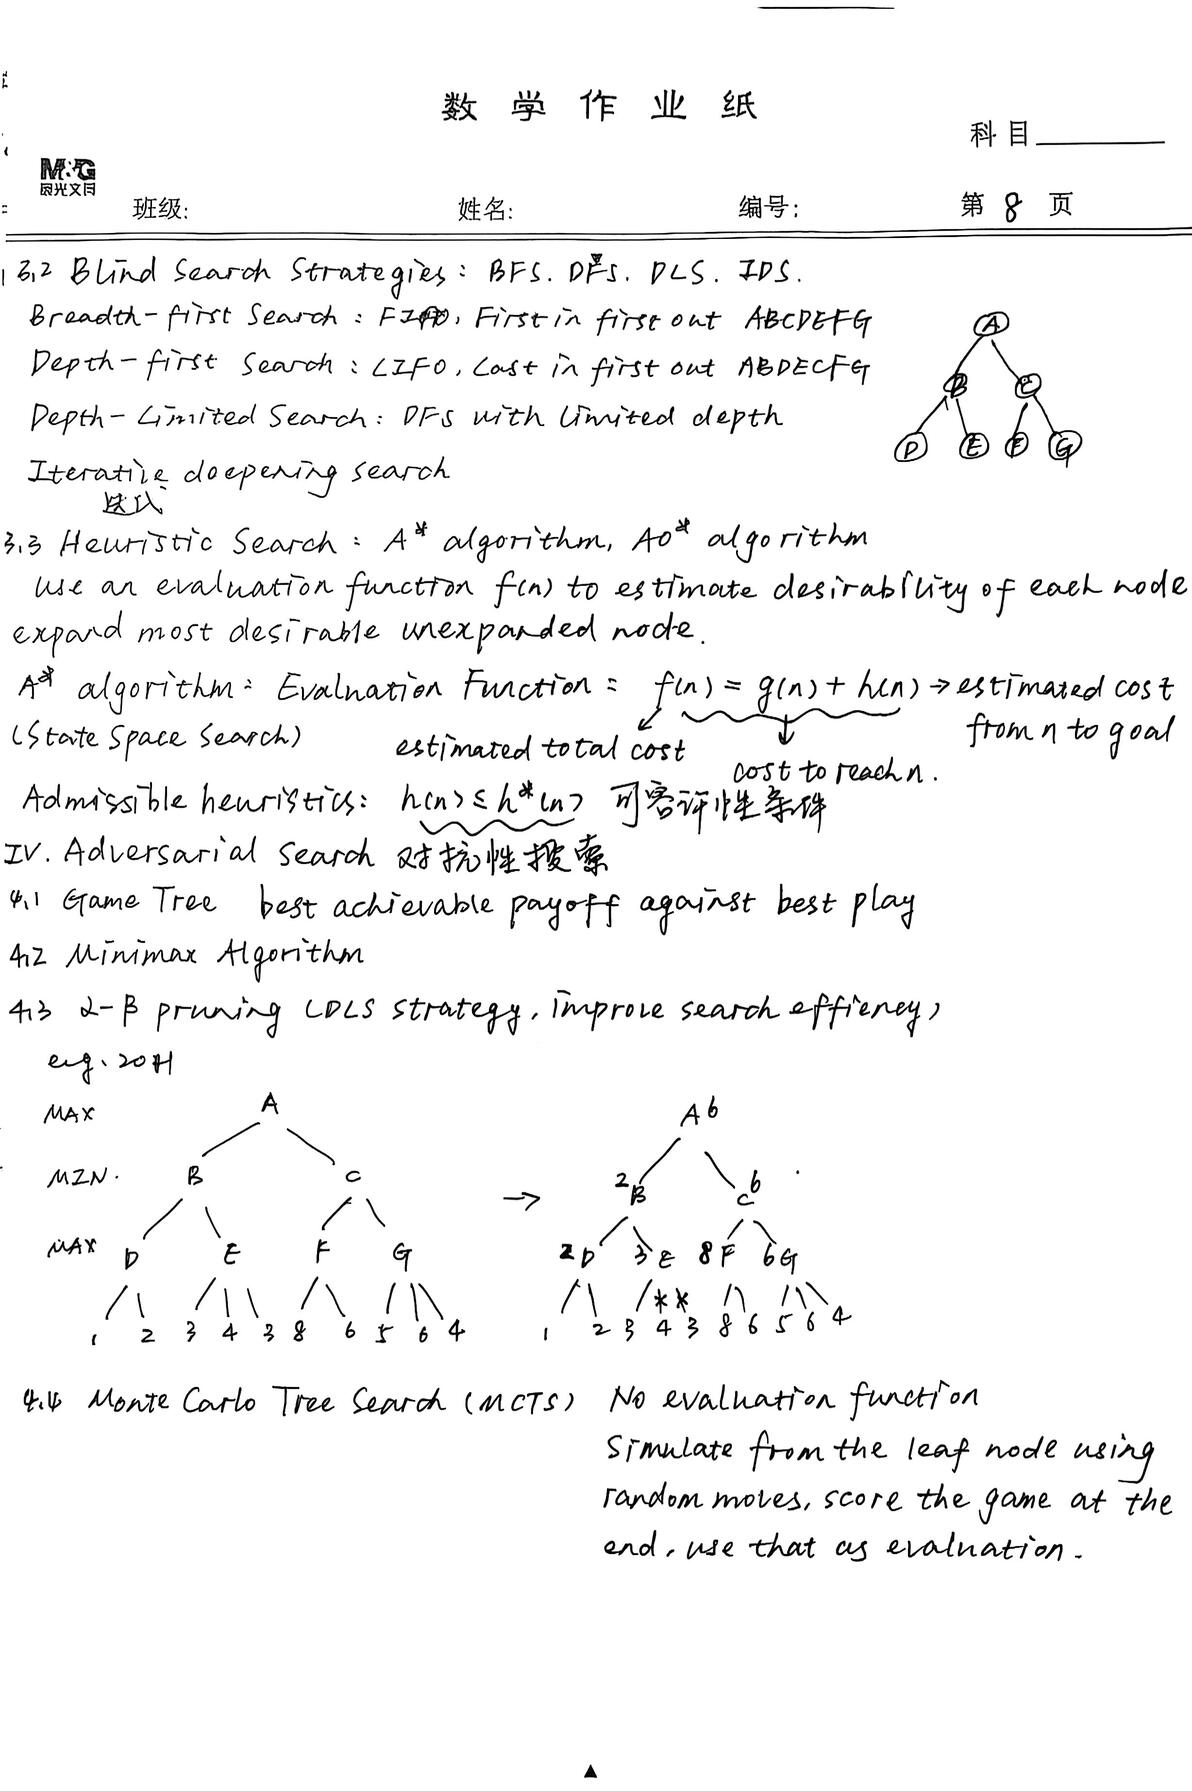 数学作业纸
科目
M&G
晨光文具
班级:
姓名:
编号:
第 8 页
3.2 Blind Search Strategies: BFS. DFS. DLS. IDS.
Breadth-first Search: FIFO, First in first out ABCDEFG
Depth-first Search: LIFO, Last in first out ABDECFG
Depth-Limited Search: DFS with limited depth
Iterative deepening search
迭代
A
B C
D E F G
3.3 Heuristic Search: A* algorithm, AO* algorithm
use an evaluation function f(n) to estimate desirability of each node
expand most desirable unexpanded node.
A* algorithm: Evaluation Function: f(n) = g(n) + h(n) → estimated cost
from n to goal
(State Space Search)
estimated total cost
cost to reach n.
Admissible heuristics: h(n) ≤ h*(n) 可容许性条件
IV. Adversarial Search 对抗性搜索
4.1 Game Tree best achievable payoff against best play
4.2 Minimax Algorithm
4.3 α-β pruning (DLS strategy, improve search effieney)
e.g. 20H
MAX A
MIN. B C
MAX D E F G
1 2 3 4 3 8 6 5 6 4
→
A 6
2 B C 6
2 D 3 E 8 F 6 G
* *
1 2 3 4 3 8 6 5 6 4
4.4 Monte Carlo Tree Search (MCTS) No evaluation function
Simulate from the leaf node using
random moves, score the game at the
end, use that as evaluation.